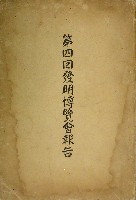 第四回發明博覽會報告